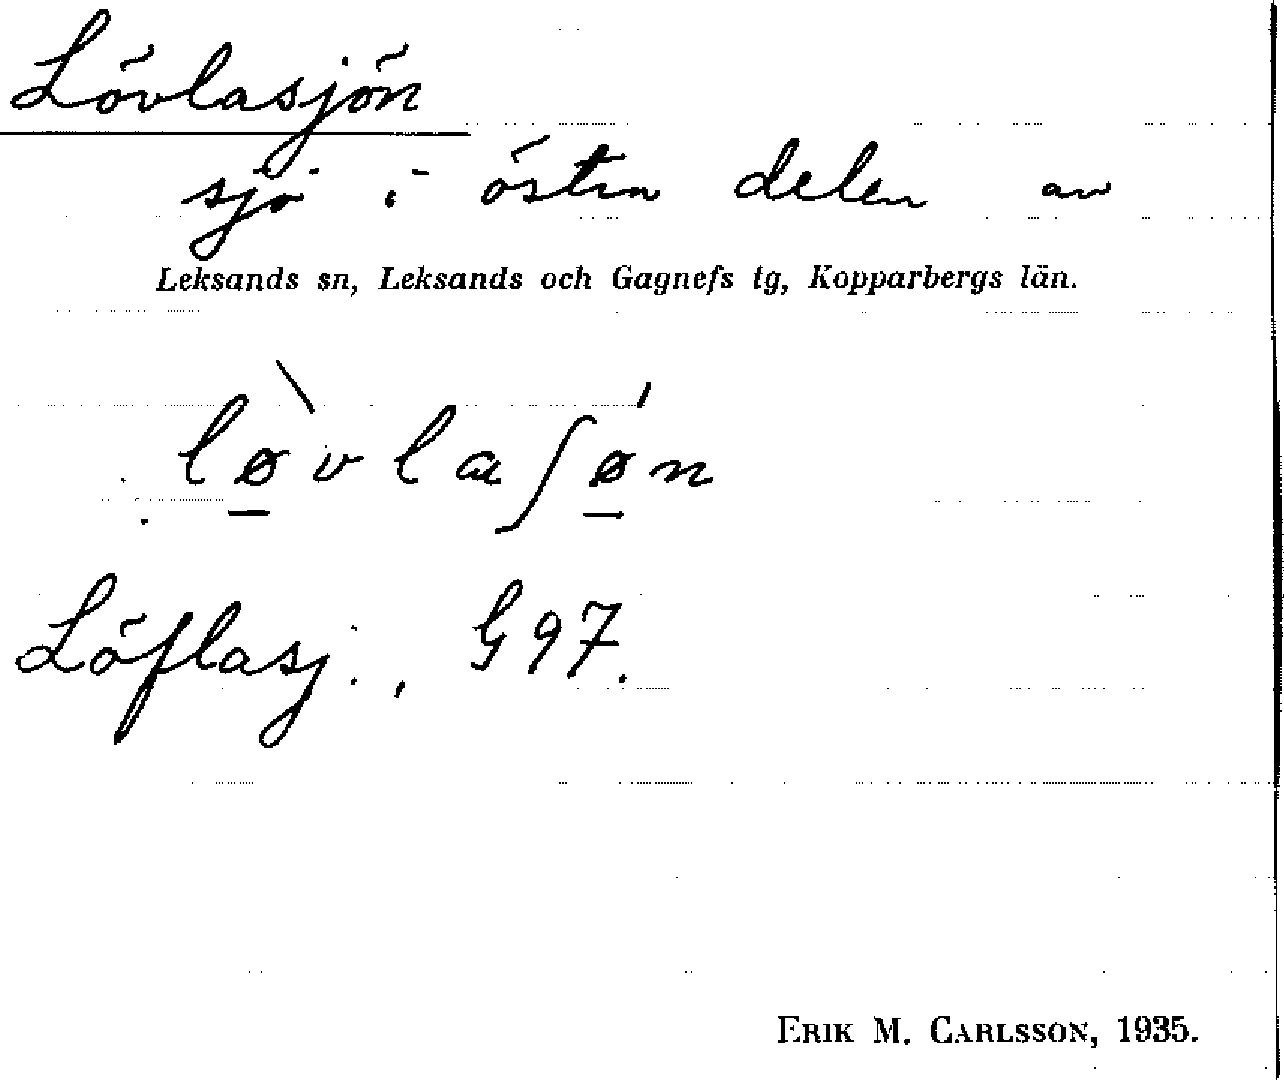 Lövlasjön
sjö i östra delen av
Leksands sn, Leksands och Gagnefs tg, Kopparbergs län.
lø̠̀vlaʃǿ̠n
Löflasj:, G97.
ERIK M. CARLSSON, 1935.